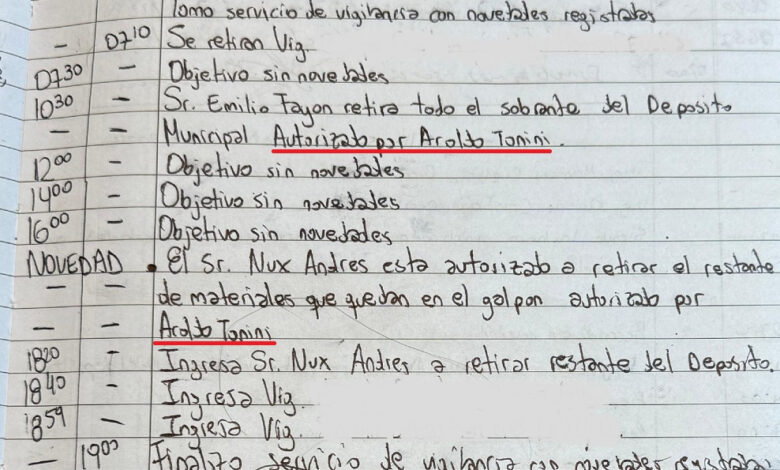 Tomo servicio de vigilancia con novedades registradas
- 0710 Se retiran Vig.
0730 - Objetivo sin novedades
1030 - Sr. Emilio Fayon retira todo el sobrante del Deposito
- - Municipal Autorizado por Aroldo Tonini.
1200 - Objetivo sin novedades
1400 - Objetivo sin novedades
1600 - Objetivo sin novedades
NOVEDAD • El Sr. Nux Andres esta autorizado a retirar el restante
- - de materiales que quedan en el galpon autorizado por
- - Aroldo Tonini
1820 - Ingresa Sr. Nux Andres a retirar restante del Deposito.
1840 - Ingresa Vig.
1859 - Ingresa Vig.
- 1900 Finalizo servicio de vigilancia con novedades registradas